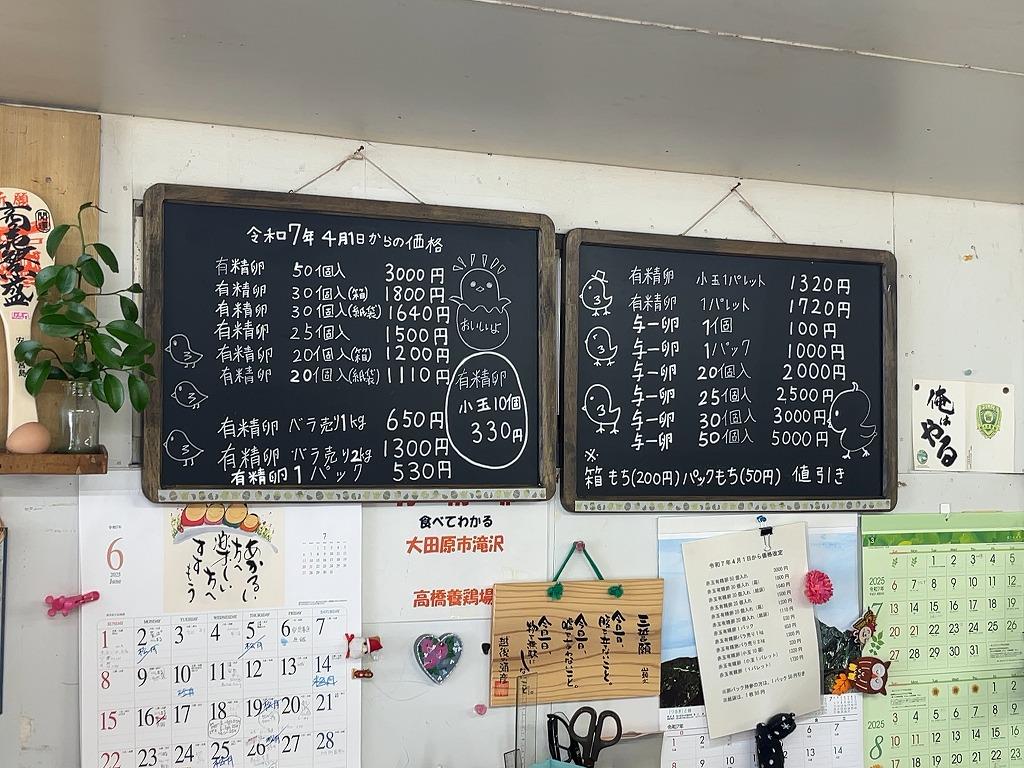 令和7年 4月1日からの価格
有精卵 50個入 3000円
有精卵 30個入(箱) 1800円
有精卵 30個入(紙袋) 1640円
有精卵 25個入 1500円
有精卵 20個入(箱) 1200円
有精卵 20個入(紙袋) 1110円
有精卵 バラ売り1kg 650円
有精卵 バラ売り2kg 1300円
有精卵 1パック 530円
おいしいよ
有精卵
小玉10個
330円
有精卵 小玉1パレット 1320円
有精卵 1パレット 1720円
与一卵 1個 100円
与一卵 1パック 1000円
与一卵 20個入 2000円
与一卵 25個入 2500円
与一卵 30個入 3000円
与一卵 50個入 5000円
※
箱もち(200円)パックもち(50円) 値引き
俺は
やる
食べてわかる
大田原市滝沢
高橋養鶏場
6
2025
June
あかるい
方へ
楽しい
方へ
すすもう
7
SUNDAY MONDAY TUESDAY WEDNESDAY THURSDAY FRIDAY SATURDAY
1 2 3 4 5 6 7
8 9 10 11 12 13 14
15 16 17 18 19 20 21
22 23 24 25 26 27 28
三祈願
今日一日
今日一日
令和7年4月1日から価格改定
2025
7
1 2 3 4 5
6 7 8 9 10 11 12
13 14 15 16 17 18 19
20 21 22 23 24 25 26
27 28 29 30 31
2025
8
1 2
3 4 5 6 7 8 9